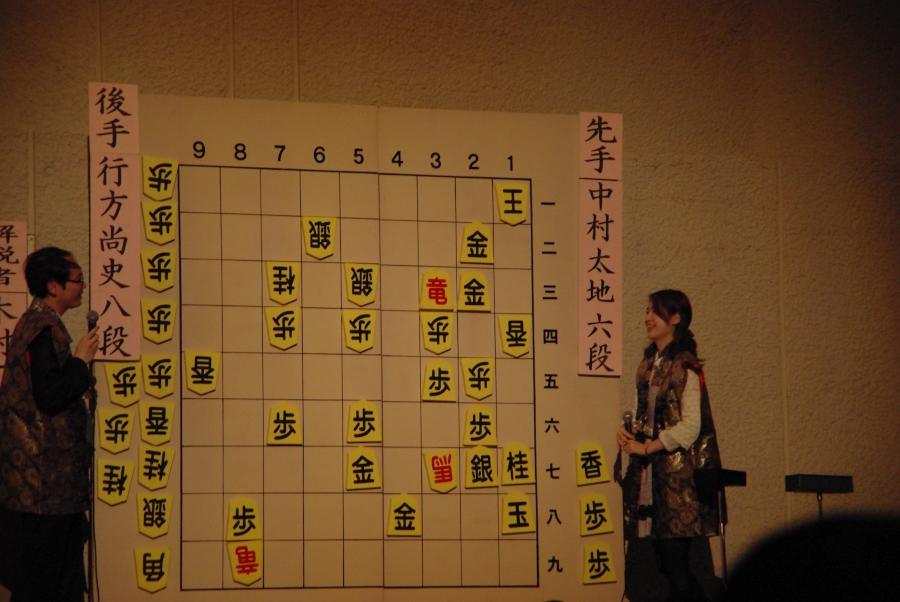 後手 行方尚史八段
先手 中村太地六段
解説者 木村
9 8 7 6 5 4 3 2 1
王 一
銀 金 二
桂 銀 竜 金 三
歩 歩 歩 香 四
香 歩 歩 五
歩 歩 歩 六
金 馬 銀 桂 七
歩 金 玉 八
竜 九
歩
歩
歩
歩
歩 歩
歩 香
桂 桂
銀
角
香
歩
歩